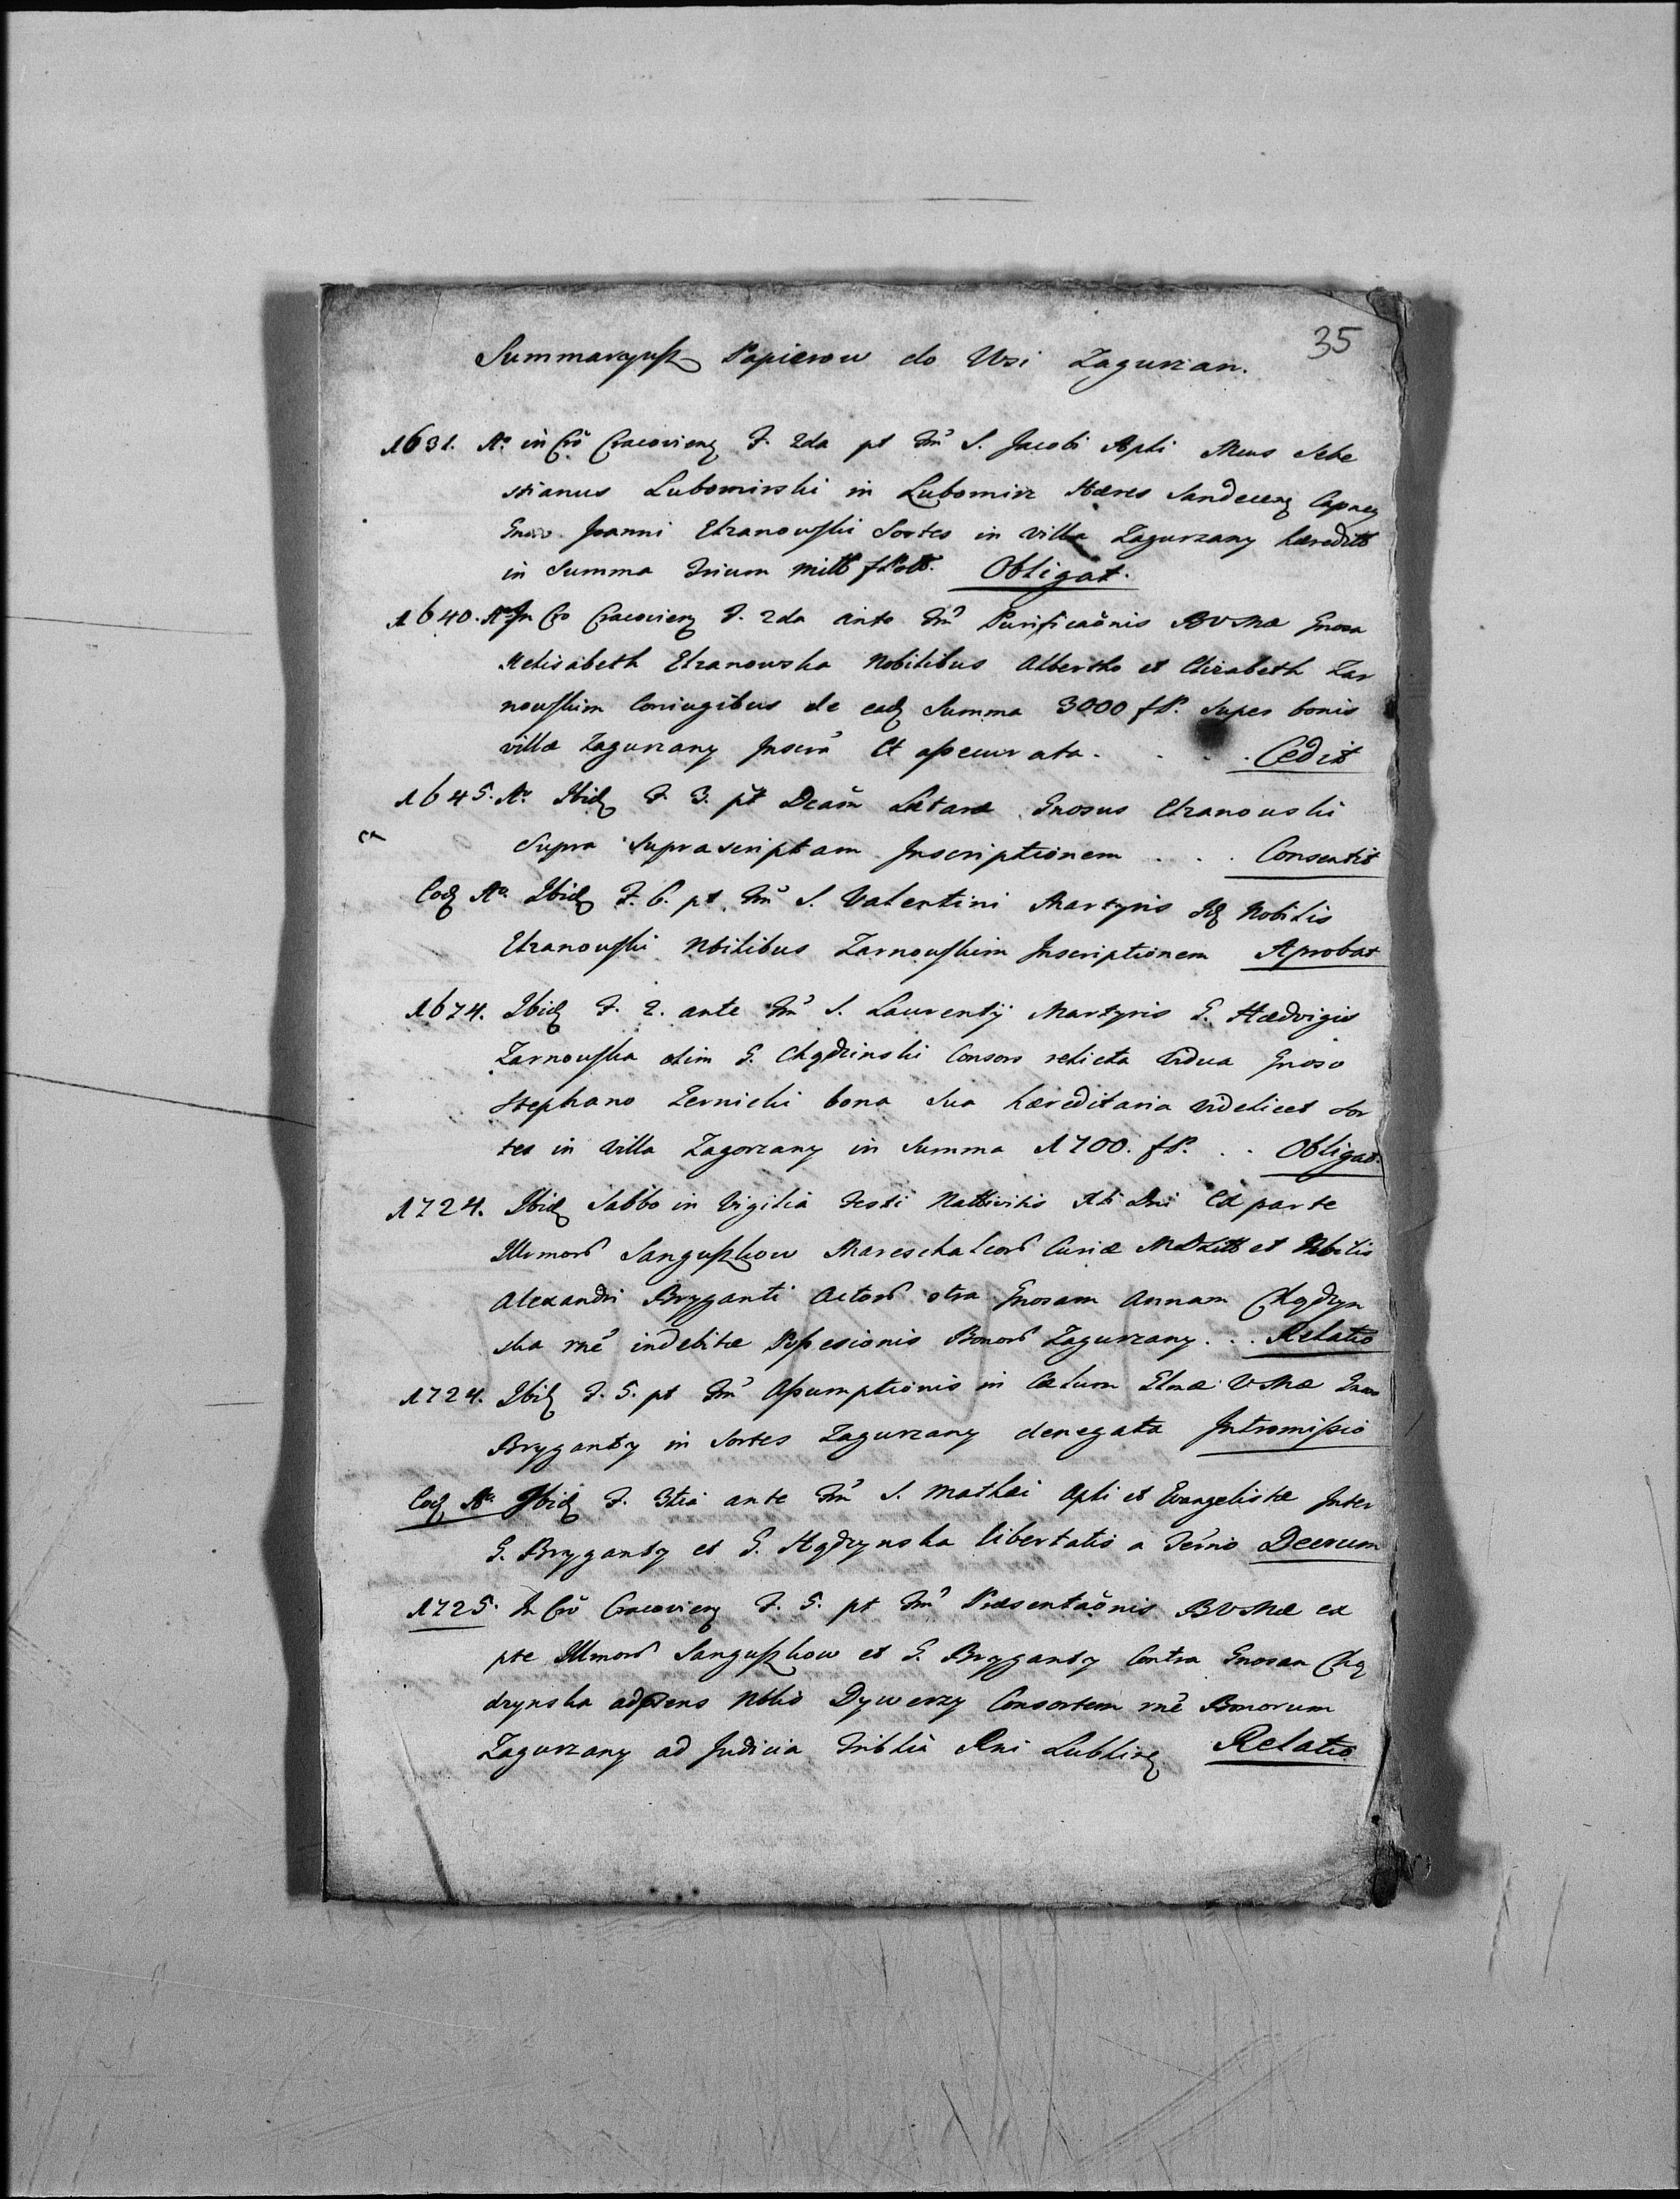 35
Summaryusz Papierow do Wsi Zagurzan.
1631. Aº in Crō Cracovien F. 2da pt fm̄ S. Jacobi Apli Mcus Seba
stianus Lubomirski in Lubomirz Hæres Sandecen Capneus
Gnoso Joanni Chranowski Sortes in villa Zagurzany hæreditt
in Summa trium mill flPoll. Obligat.
1640. Aº In Cro Cracovien F. 2da ante fm̄ Purificaōnis BVMæ Gnosa
Helisabeth Chranowska Nobilibus Albertho et Elizabeth Zar
nowskim Coniugibus de eadq Summa 3000 fP. super bonis
villæ Zagurzany Inscra Et assecurata . . . . Cedit
1645. Aº Ibidq F. 3. pt Dcam Lætare Gnosus Chranowski
Supra Suprascriptam Inscriptionem . . . Consentit
Eodq Aº Ibidq F. 6. pt fm̄ S. Valentini Martyris Idq Nobilis
Chranowski Nbilibus Zarnowskim Inscriptionem Aprobat
1674. Ibidq F. 2. ante fm̄ S. Laurentÿ Martyris G. Hædvigis
Zarnowska olim G. Chądzinski Consors relicta vidua Gnoso
Stephano Zernicki bona sua hæreditaria videlicet Sor
tes in villa Zagorzany in Summa 1700. fP. . . Obligat.
1724. Ibidq Sabbo in Vigilia Festi Nattivitis Xti Dni Ex parte
Illrmor Sanguszkow Mareschalcor Curiæ MDLitt et Nbilis
Alexandri Bryganti Actor ctra Gnosam Annam Chądzyn
ska rne indebitæ Possesionis Bonor Zagurzany . . . Relatio
1724. Ibidq F. 5. pt fm̄ Assumptionis in Cælum Glosæ VMæ Gnoso
Bryganty in Sortes Zagurzany denegata Intromissio
Eodq Aº Ibidq F. 3tia ante fm̄ S. Mathæi Apli et Evangelistæ Inter
G. Bryganty et G. Hądzynska libertatis a Termo Decrum
1725. In Cro Cracovien F. 5. pt fm̄ Præsentaōnis BVMæ ex
pte Illmor Sanguszkow et G. Bryganty Contra Gnosan Chą
dzynska adprens Nblis Dywerzy Consortem rne Bonorum
Zagurzany ad Judicia Triblia Rni Lublinq Relatio